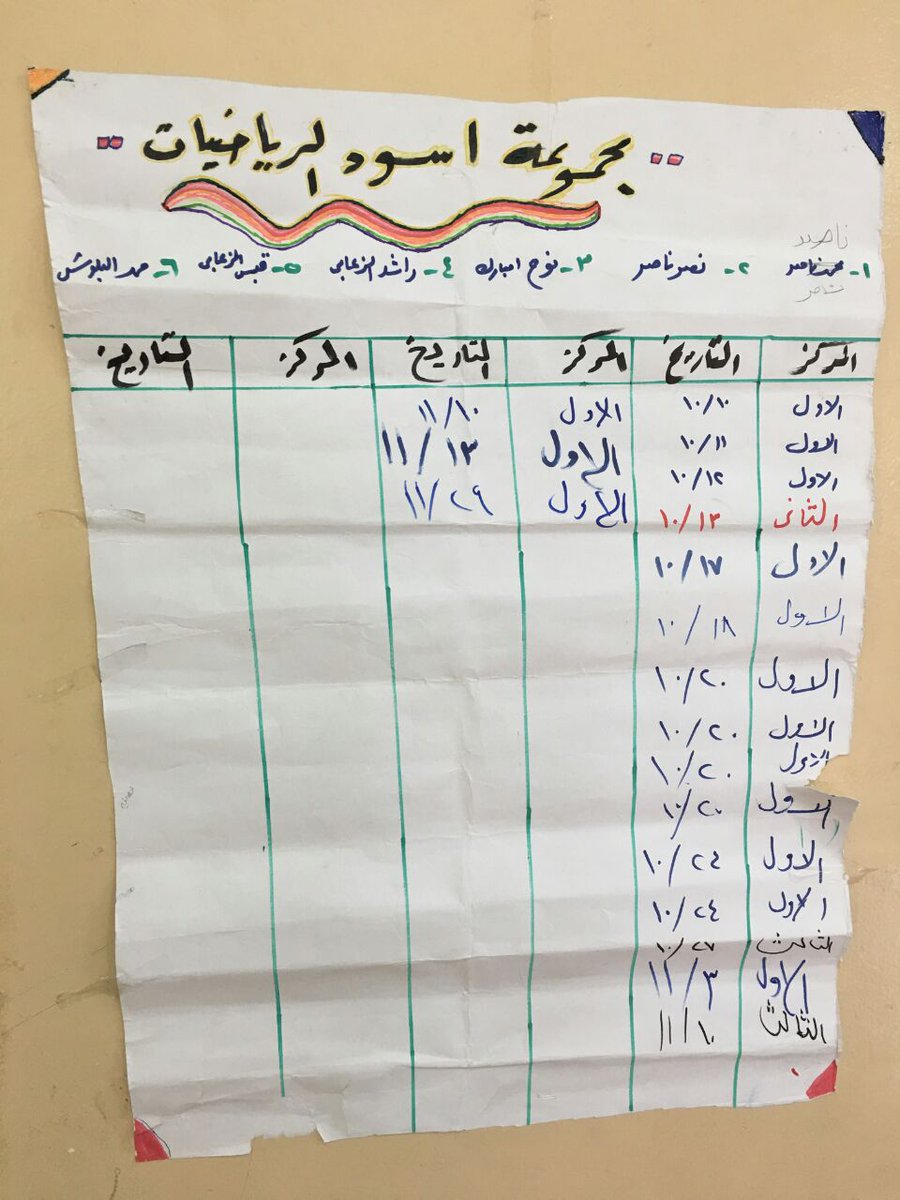 "مجموعة اسود الرياضيات"
ناصر
١- محمد ناصر ٢- نصر ناصر ٣- نوح امبارك ٤- راشد الزعابي ٥- قيس الزعابي ٦- حمد البلوشي
المركز التاريخ المركز التاريخ المركز التاريخ
الاول ١٠/١٠ الاول ١١/١٠
الاول ١٠/١١ الاول ١١/١٣
الاول ١٠/١٢ الأول ١١/٢٩
الثاني ١٠/١٣
الاول ١٠/١٧
الاول ١٠/١٨
الاول ١٠/٢٠
الاول ١٠/٢٠
الاول ١٠/٢٠
الاول ١٠/٢٠
الاول ١٠/٢٤
الاول ١٠/٢٤
الثالث ١٠/٢٧
الاول ١١/٣
الثالث ١١/١٠